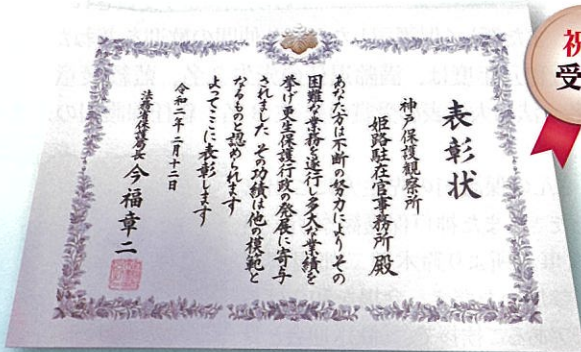 表彰状
神戸保護観察所
姫路駐在官事務所 殿
あなた方は不断の努力によりその
困難な業務を遂行し多大な業績を
挙げ更生保護行政の発展に寄与
されました その功績は他の模範と
なるものと認められます
よってここに表彰します
令和二年二月十二日
法務省保護局長 今福章二
祝
受